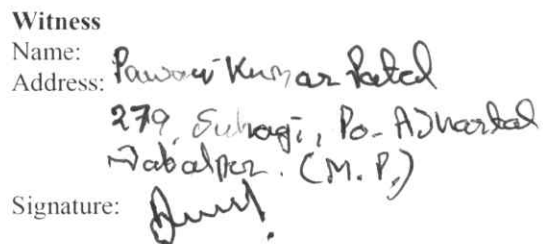 Witness
Name:
Address: Pawan Kumar Patel
279, Suhagi, Po- Adhartal
Jabalpur. (M.P.)
Signature: